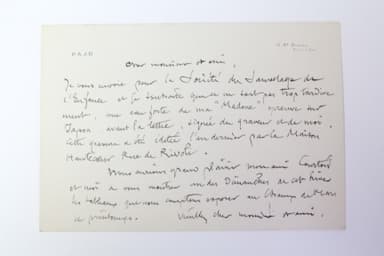 Cher monsieur et ami,
Je vous envoie pour la Société du Sauvetage de
l'Enfance et je souhaite que ce ne soit pas trop tardive
ment, une eau forte de ma "Madone" épreuve sur
Japon avant la lettre, signée du graveur et de moi.
Cette gravure a été éditée l'an dernier par la Maison
Hautecoeur Rue de Rivoli.
Nous aurions grand plaisir mon ami
et moi à vous montrer un des Dimanches de cet hiver
les tableaux que nous comptons exposer au Champ de Mars
ce printemps. Veuillez cher monsieur et ami,